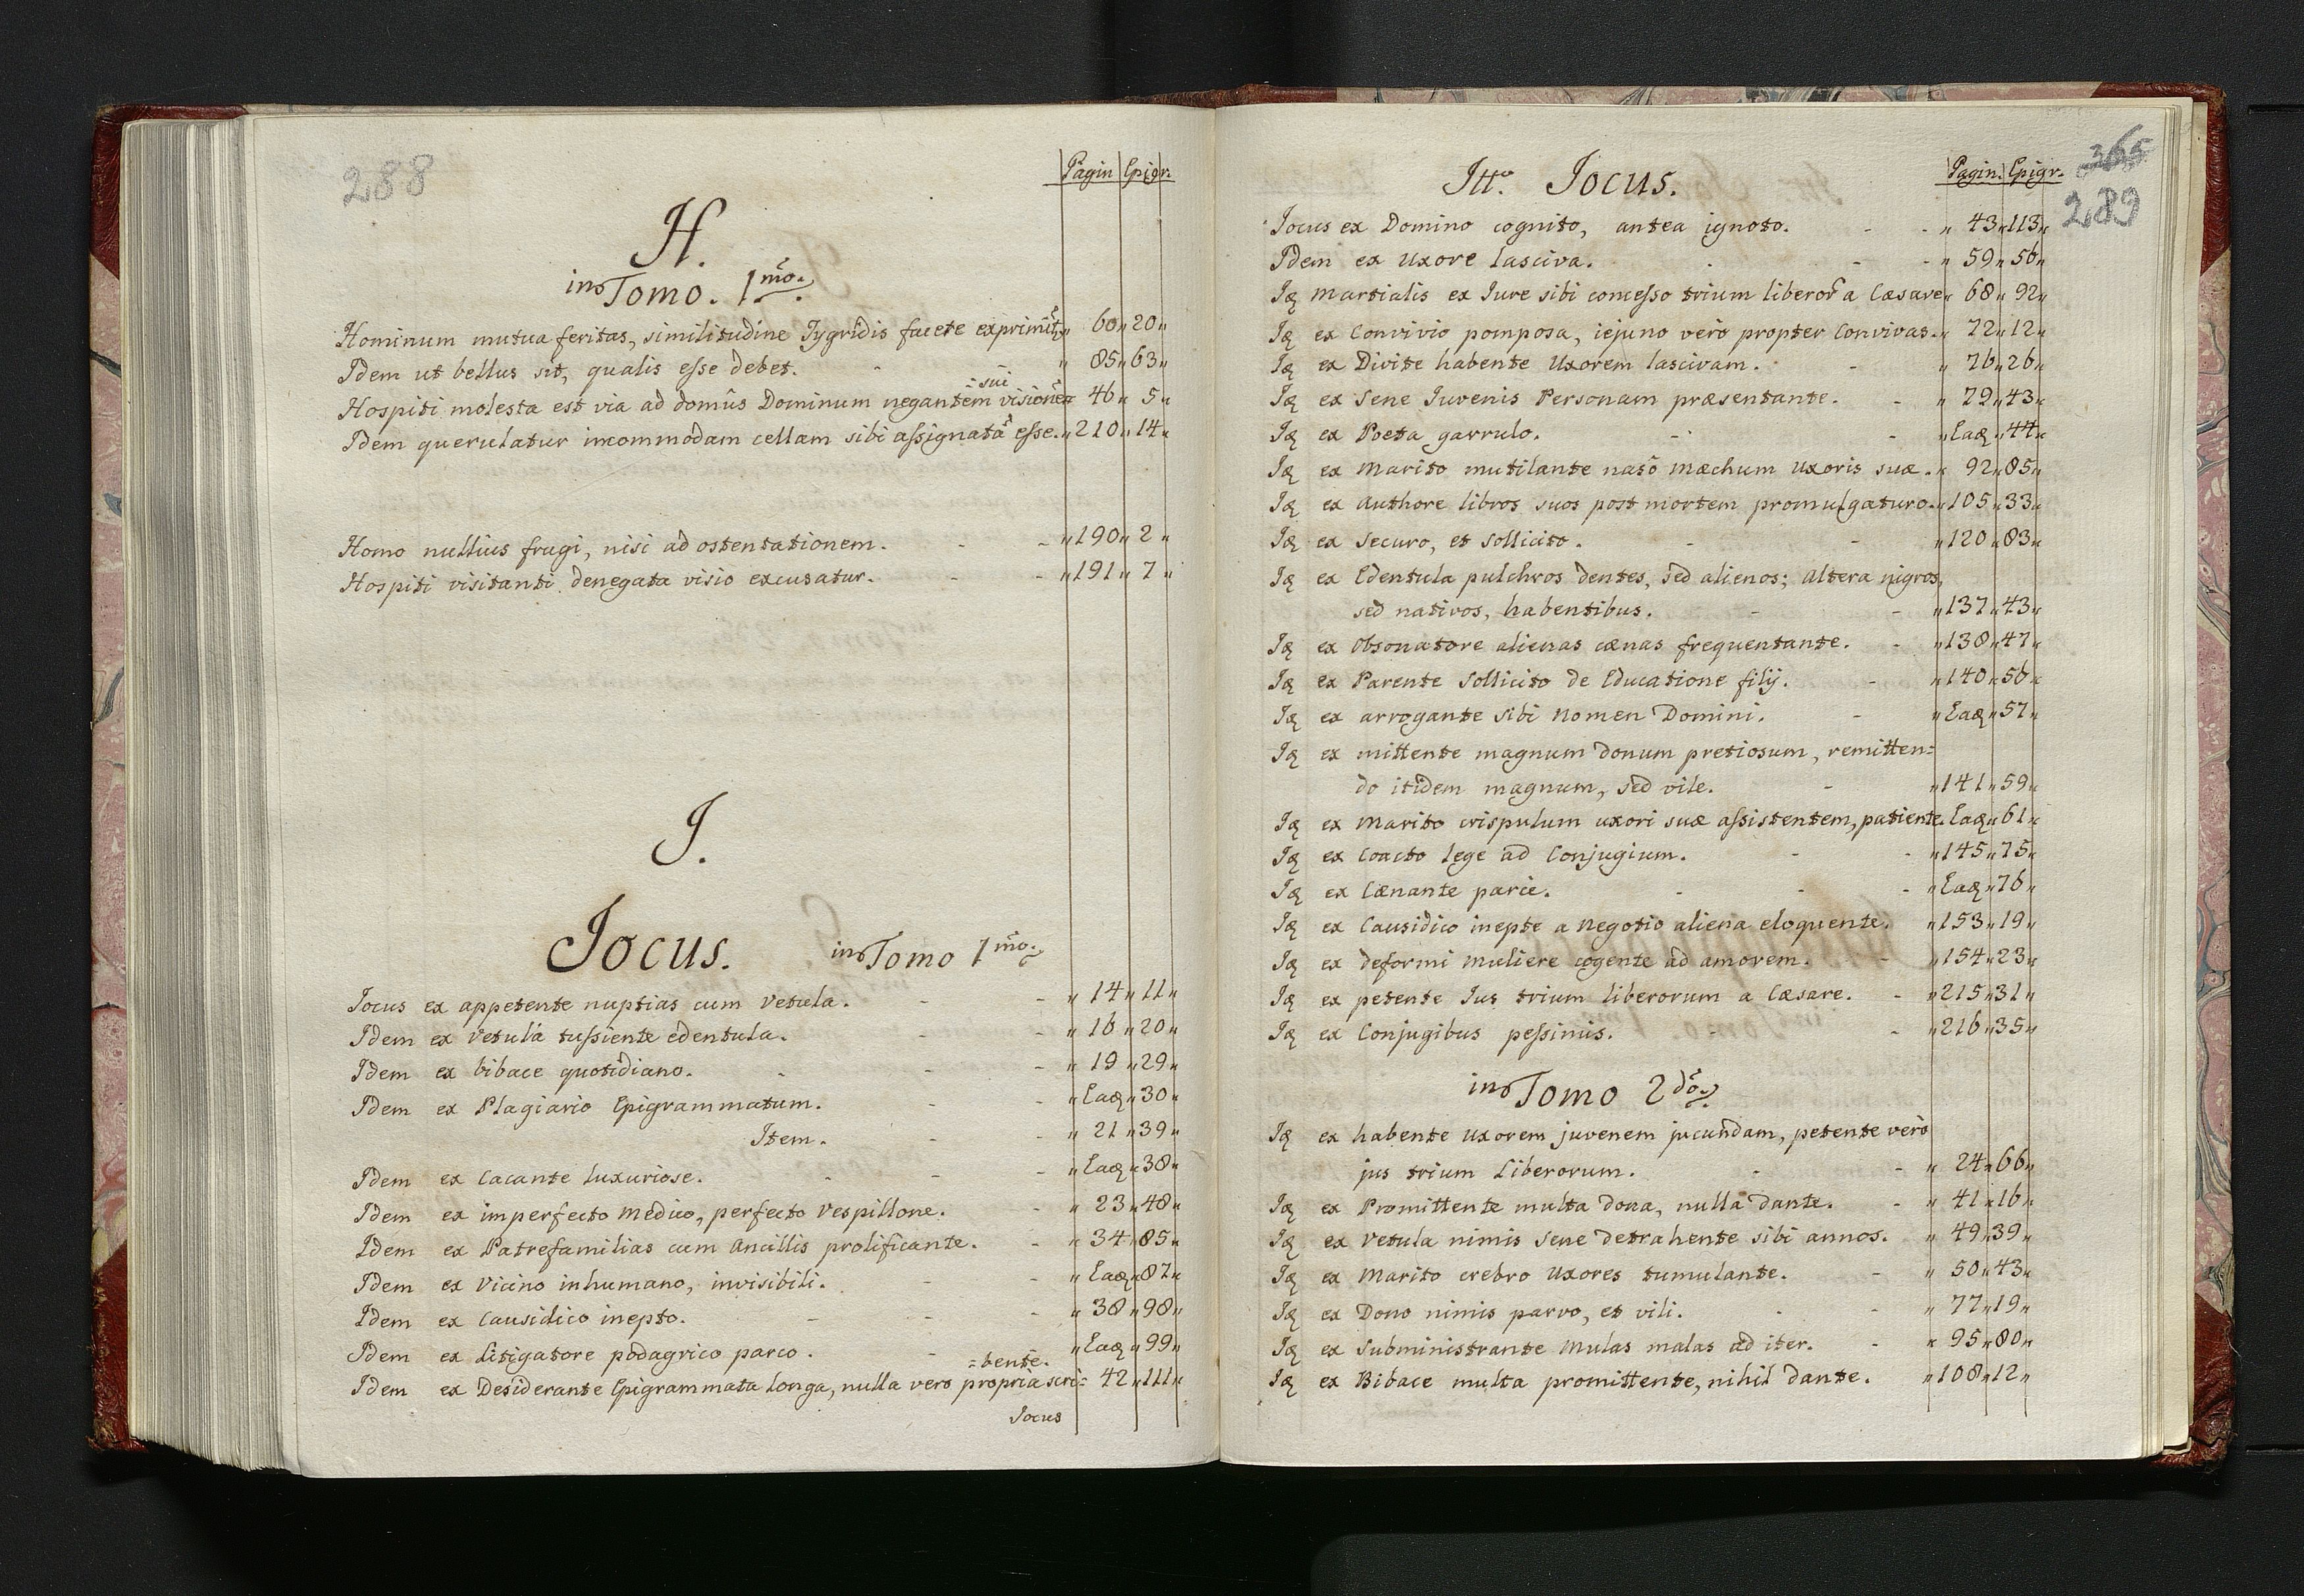 288
Pagin Epigr.
H.
in Tomo. 1mo.
Hominum mutua feritas, similitudine Tygridis facete exprimit͂r „ 60 „ 20 „
Idem ut bellus sit, qualis esse debet. - - „ 85 „ 63 „
sui
Hospiti molesta est via ad domûs Dominum negantem visionē „ 46 „ 5 „
Idem querulatur incommodam cellam sibi assignatā esse. „ 210 „ 14 „
Homo nullius frugi, nisi ad ostentationem. - - „ 190 „ 2 „
Hospiti visitanti denegata visio excusatur. - - „ 191 „ 7 „
I.
Jocus. in Tomo 1mo.
Jocus ex appetente nuptias cum Vetula. - - „ 14 „ 11 „
Idem ex Vetulá tussiente edentula. - - „ 16 „ 20 „
Idem ex bibace quotidiano. - - - „ 19 „ 29 „
Idem ex Plagiario Epigrammatum. - - „ Eaq „ 30 „
Item. - - „ 21 „ 39 „
Idem ex Cacante luxuriose. - - - „ Eaq „ 38 „
Idem ex imperfecto medico, perfecto Vespillone. - „ 23 „ 48 „
Idem ex Patrefamilias cum Ancillis prolificante. - „ 34 „ 85 „
Idem ex Vicino inhumano, invisibili. - - „ Eaq „ 87 „
Idem ex Causidico inepto. - - - „ 38 „ 98 „
Idem ex Litigatore podagrico parco. - - „ Eaq „ 99 „
=bente.
Idem ex Desiderante Epigrammata longa, nulla vero propria scri= 42 „ 111 „
Jocus
365
289
Itt.o Jocus. Pagin. Epigr.
Jocus ex Domino cognito, antea ignoto. - - „ 43 „ 113 „
Idem ex Uxore lasciva. - - - „ 59 „ 56 „
Iq Martialis ex Jure sibi concesso trium liberor̄ a Cæsare „ 68 „ 92 „
Iq ex Convivio pomposa, iejuno verò propter Convivas. „ 72 „ 12 „
Iq ex Divite habente Uxorem lascivam. - „ 76 „ 26 „
Iq ex Sene Juvenis Personam præsentante. - „ 79 „ 43 „
Iq ex Poeta garrulo. - - „ Eaq „ 44 „
Iq ex Marito mutilante nasō Mæchum Uxoris suæ. „ 92 „ 85 „
Iq ex Authore libros suos post mortem promulgaturo. „ 105 „ 33 „
Iq ex Securo, et Sollicito. - - „ 120 „ 83 „
Iq ex Edentula pulchros dentes, sed alienos; Altera nigros,
sed nativos, habentibus. - - „ 137 „ 43 „
Iq ex Obsonatore alienas cænas frequentante. - „ 138 „ 47 „
Iq ex Parente Sollicito de Educatione filij. - „ 140 „ 56 „
Iq ex arrogante sibi Nomen Domini. - „ Eaq „ 57 „
Iq ex mittente magnum donum pretiosum, remitten=
do itidem magnum, sed vile. - „ 141 „ 59 „
Iq ex Marito crispulum uxori suæ assistentem, patiente. Eaq „ 61 „
Iq ex Coacto lege ad Conjugium. - - „ 145 „ 75 „
Iq ex Cænante parce. - - - „ Eaq „ 76 „
Iq ex Causidico inepte a negotio aliena eloquente. „ 153 „ 19 „
Iq ex deformi Muliere cogente ad amorem. - „ 154 „ 23 „
Iq ex petente Jus trium liberorum a Cæsare. - „ 215 „ 31 „
Iq ex Conjugibus pessimis. - - „ 216 „ 35 „
in Tomo 2do.
Iq ex habente Uxorem juvenem jucundam, petente verò
jus trium Liberorum. - - „ 24 „ 66 „
Iq ex Promittente multa dona, nulla dante. - „ 41 „ 16 „
Iq ex Vetula nimis Sene detrahente sibi annos. „ 49 „ 39 „
Iq ex Marito crebro Uxores tumulante. - „ 50 „ 43 „
Iq ex Dono nimis parvo, et vili. - - „ 77 „ 19 „
Iq ex Subministrante Mulas malas ad iter. - „ 95 „ 80 „
Iq ex Bibace multa promittente, nihil dante. „ 108 „ 12 „